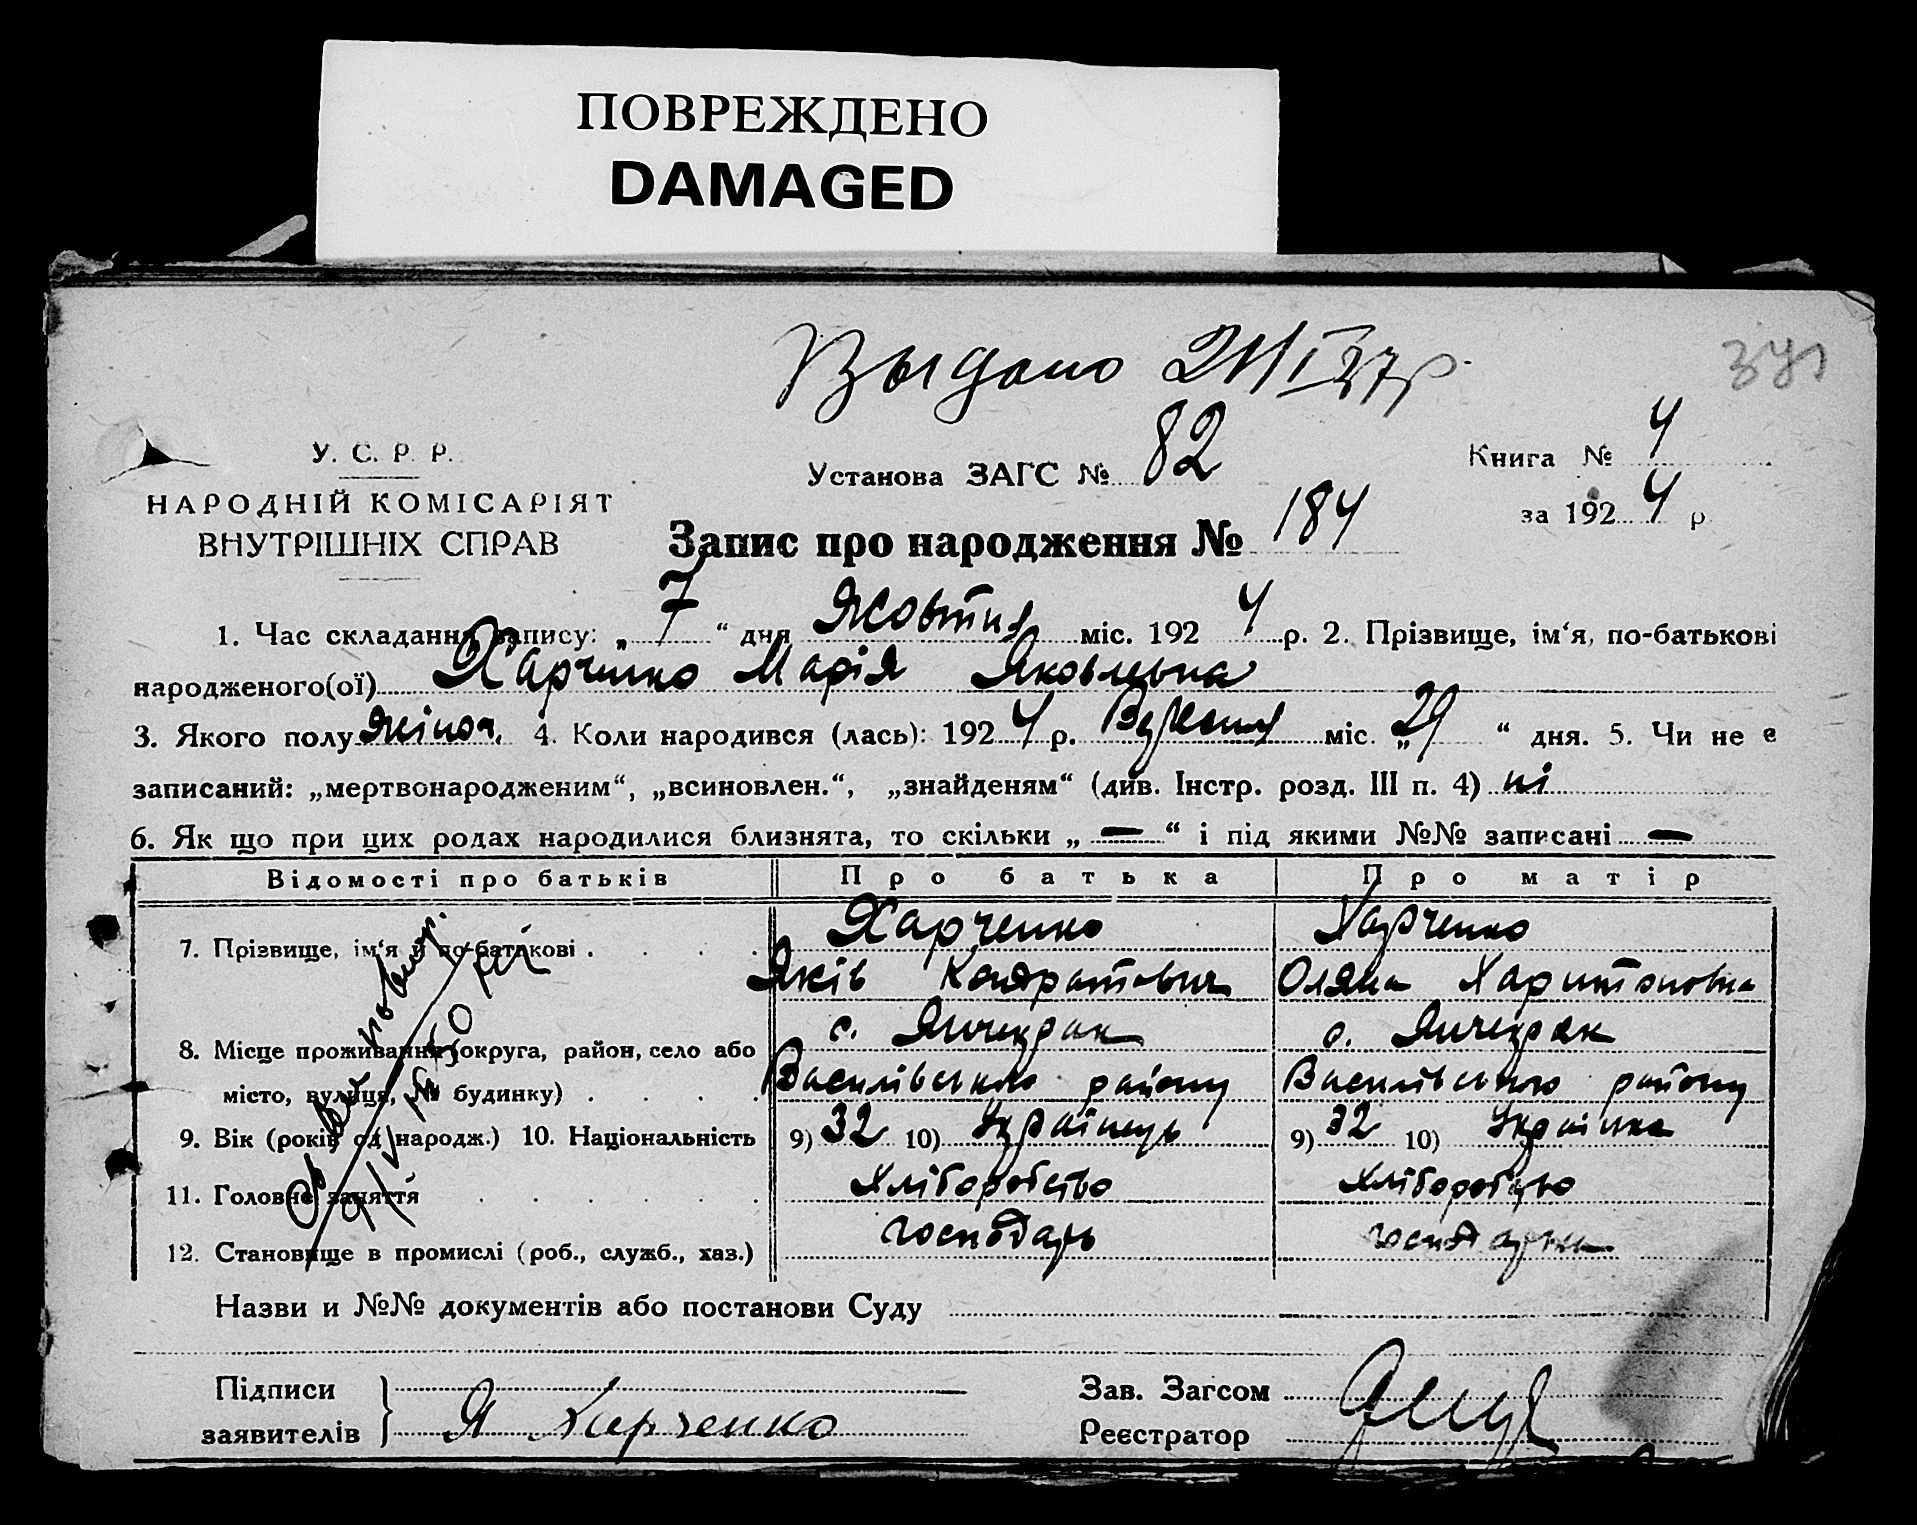 ПОВРЕЖДЕНО
DAMAGED
Выдано 21/I 37р.
У. С. Р. Р.
НАРОДНІЙ КОМІСАРІЯТ
ВНУТРІШНІХ СПРАВ
Установа ЗАГС № 82
Книга № 4
за 1924 р
Запис про народження № 184
1. Час складання запису: „ 7 “ дня Жовтня міс. 1924 р. 2. Прізвище, ім‘я, по-батькові
народженого(ої) Харченко Марія Яковлевна
3. Якого полу жіноч. 4. Коли народився (лась): 1924 р. Вересня міс. „ 29 “ дня. 5. Чи не є
записаний: „мертвонародженим“, „всиновлен.“, „знайденям“ (див. Інстр. розд. III п. 4) ні
6. Як що при цих родах народилися близнята, то скільки „ — “ і під якими №№ записані —
Відомості про батьків Про батька Про матір
7. Прізвище, ім‘я й по-батькові . . . . Харченко Харченко
Яків Кондратович Оляна Харитоновна
8. Місце проживання (округа, район, село або с. Янчекрак с. Янчекрак
місто, вулиця, № будинку) . . . . Василівського району Василівського району
9. Вік (років од народж.) 10. Національність 9) 32 10) Українець 9) 32 10) Українка
11. Головне заняття . . . . . . Хліборобство Хліборобство
12. Становище в промислі (роб., служб., хаз.) господарь господарька
Назви и №№ документів або постанови Суду
Підписи
заявителів } Я Харченко
Зав. Загсом
Реєстратор